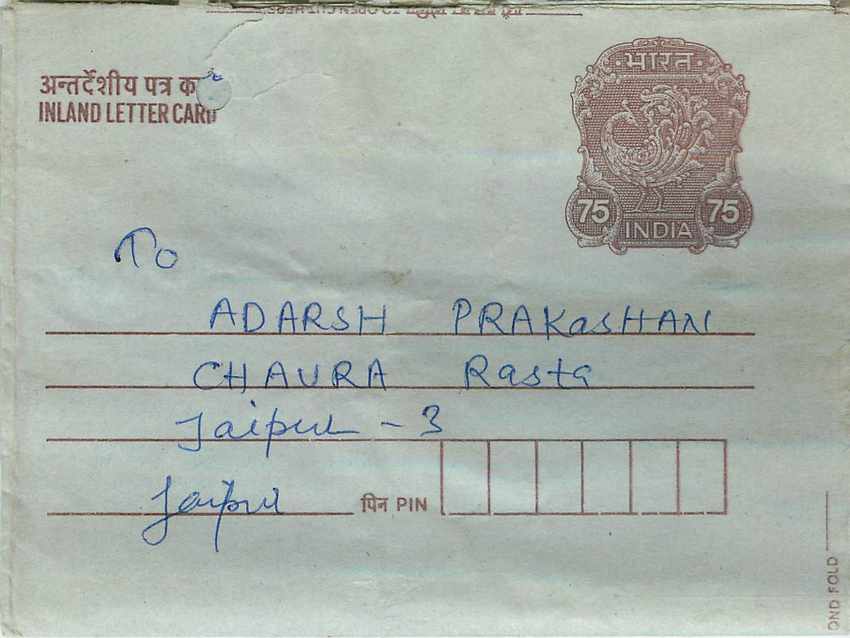 अन्तर्देशीय पत्र का
INLAND LETTER CARD
भारत
75 75
INDIA
To
ADARSH PRAKASHAN
CHAURA Rasta
Jaipur - 3
Jaipur पिन PIN
OND FOLD